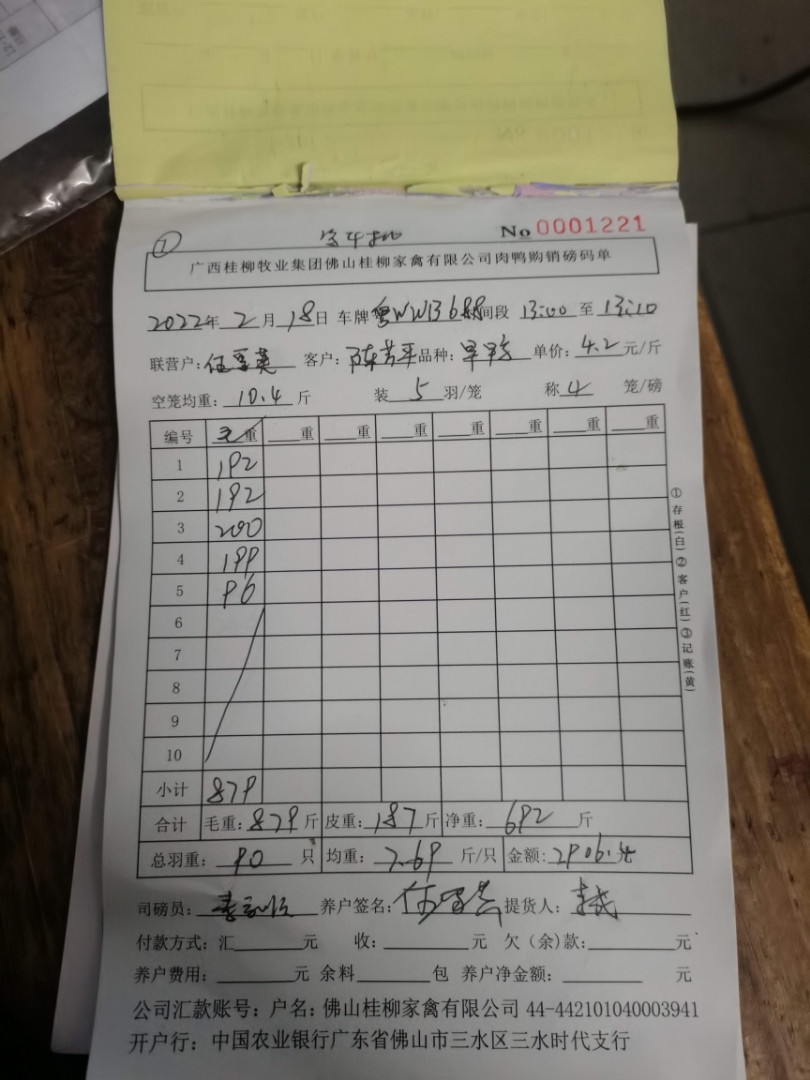 ①
No 0001221
广西桂柳牧业集团佛山桂柳家禽有限公司肉鸭购销磅码单
2022年 2月 18日 车牌 粤WWB688 间段 13:00 至 13:10
联营户: 客户: 陈芳平 品种: 单价: 4.2 元/斤
空笼均重: 10.4 斤 装 5 羽/笼 称 4 笼/磅
编号 毛重 重 重 重 重 重 重 重
1 192
2 192
3 200
4 199
5 96
6
7
8
9
10
小计 879
合计 毛重: 879 斤 皮重: 187 斤 净重: 692 斤
总羽重: 90 只 均重: 7.69 斤/只 金额: 2906.4
司磅员: 养户签名: 提货人:
付款方式: 汇 元 收: 元 欠(余)款: 元
养户费用: 元 余料 包 养户净金额: 元
公司汇款账号: 户名: 佛山桂柳家禽有限公司 44-442101040003941
开户行: 中国农业银行广东省佛山市三水区三水时代支行
①存根(白)②客户(红)③记账(黄)